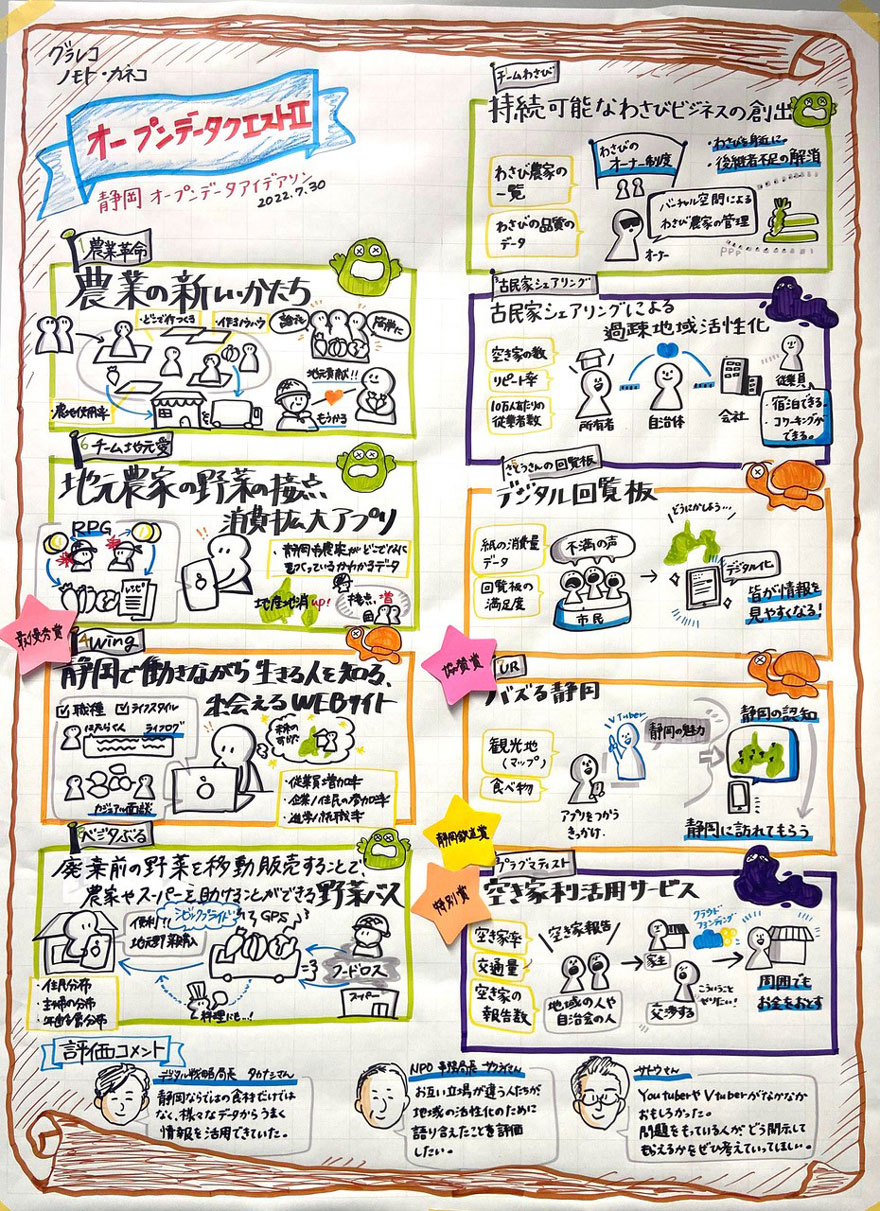 グラレコ
ノモト・カネコ
オープンデータクエストⅡ
静岡 オープンデータアイデアソン
2022.7.30
1 農業革命
農業の新しいかたち
どこで何つくる
作るノウハウ
誰でも
簡単に
・農地使用率
地元貢献!!
もうかる
6 チーム地元愛
地元農家の野菜の接点
消費拡大アプリ
RPG
レシピ
地産地消up!
接点 増
最優秀賞
4 wing
静岡で働きながら生きる人を知る、
出会えるWEBサイト
職種
ライフスタイル
はたらくん
ライフログ
カジュアル面談
・従業員増加率
・企業/住民の増加率
・進学/就職率
5 ベジタぶる
廃棄前の野菜を移動販売することで、
農家やスーパーを助けることができる野菜バス
便利!
シビックプライド
GPS
地元野菜購入
フードロス
スーパー
料理にも…!
・住民分布
・主婦の分布
チームわさび
持続可能なわさびビジネスの創出
わさび農家の
一覧
わさびの品質の
データ
わさびの
オーナー制度
・わさびを身近に。
・後継者不足の解消
バーチャル空間による
わさび農家の管理
オーナー
古民家シェアリング
古民家シェアリングによる
過疎地域活性化
空き家の数
リピート率
10万人あたりの
従業者数
所有者
自治体
会社
従業員
・宿泊できる.
・コワーキングが
できる。
さとうさんの回覧板
デジタル回覧板
紙の消費量
データ
回覧板の
満足度
不満の声
市民
どうにかしよう…
デジタル化
皆が情報を
見やすくなる!
協賛賞
UR
バズる静岡
観光地
(マップ)
食べ物
VTuber
静岡の魅力
アプリをつかう
きっかけ.
静岡の認知
静岡に訪れてもらう
静岡鉄道賞
特別賞
プラグマティスト
空き家利活用サービス
空き家率
交通量
空き家の
報告数
空き家報告
地域の人や
自治会の人
家主
クラウド
ファンディング
こういうこと
ぜひしたい!
交渉する
周囲でも
お金をおとす
評価コメント
デジタル戦略局長 タカナシさん
静岡ならではの食材だけでは
なく、様々なデータからうまく
情報を活用できていた。
NPO 事務局長 サクライさん
お互い立場が違う人たちが、
地域の活性化のために
語り合えたことを評価
したい。
サトウさん
YoutuberやVtuberがなかなか
おもしろかった。
問題をもっている人が、どう開示して
もらえるかをぜひ考えていってほしい。